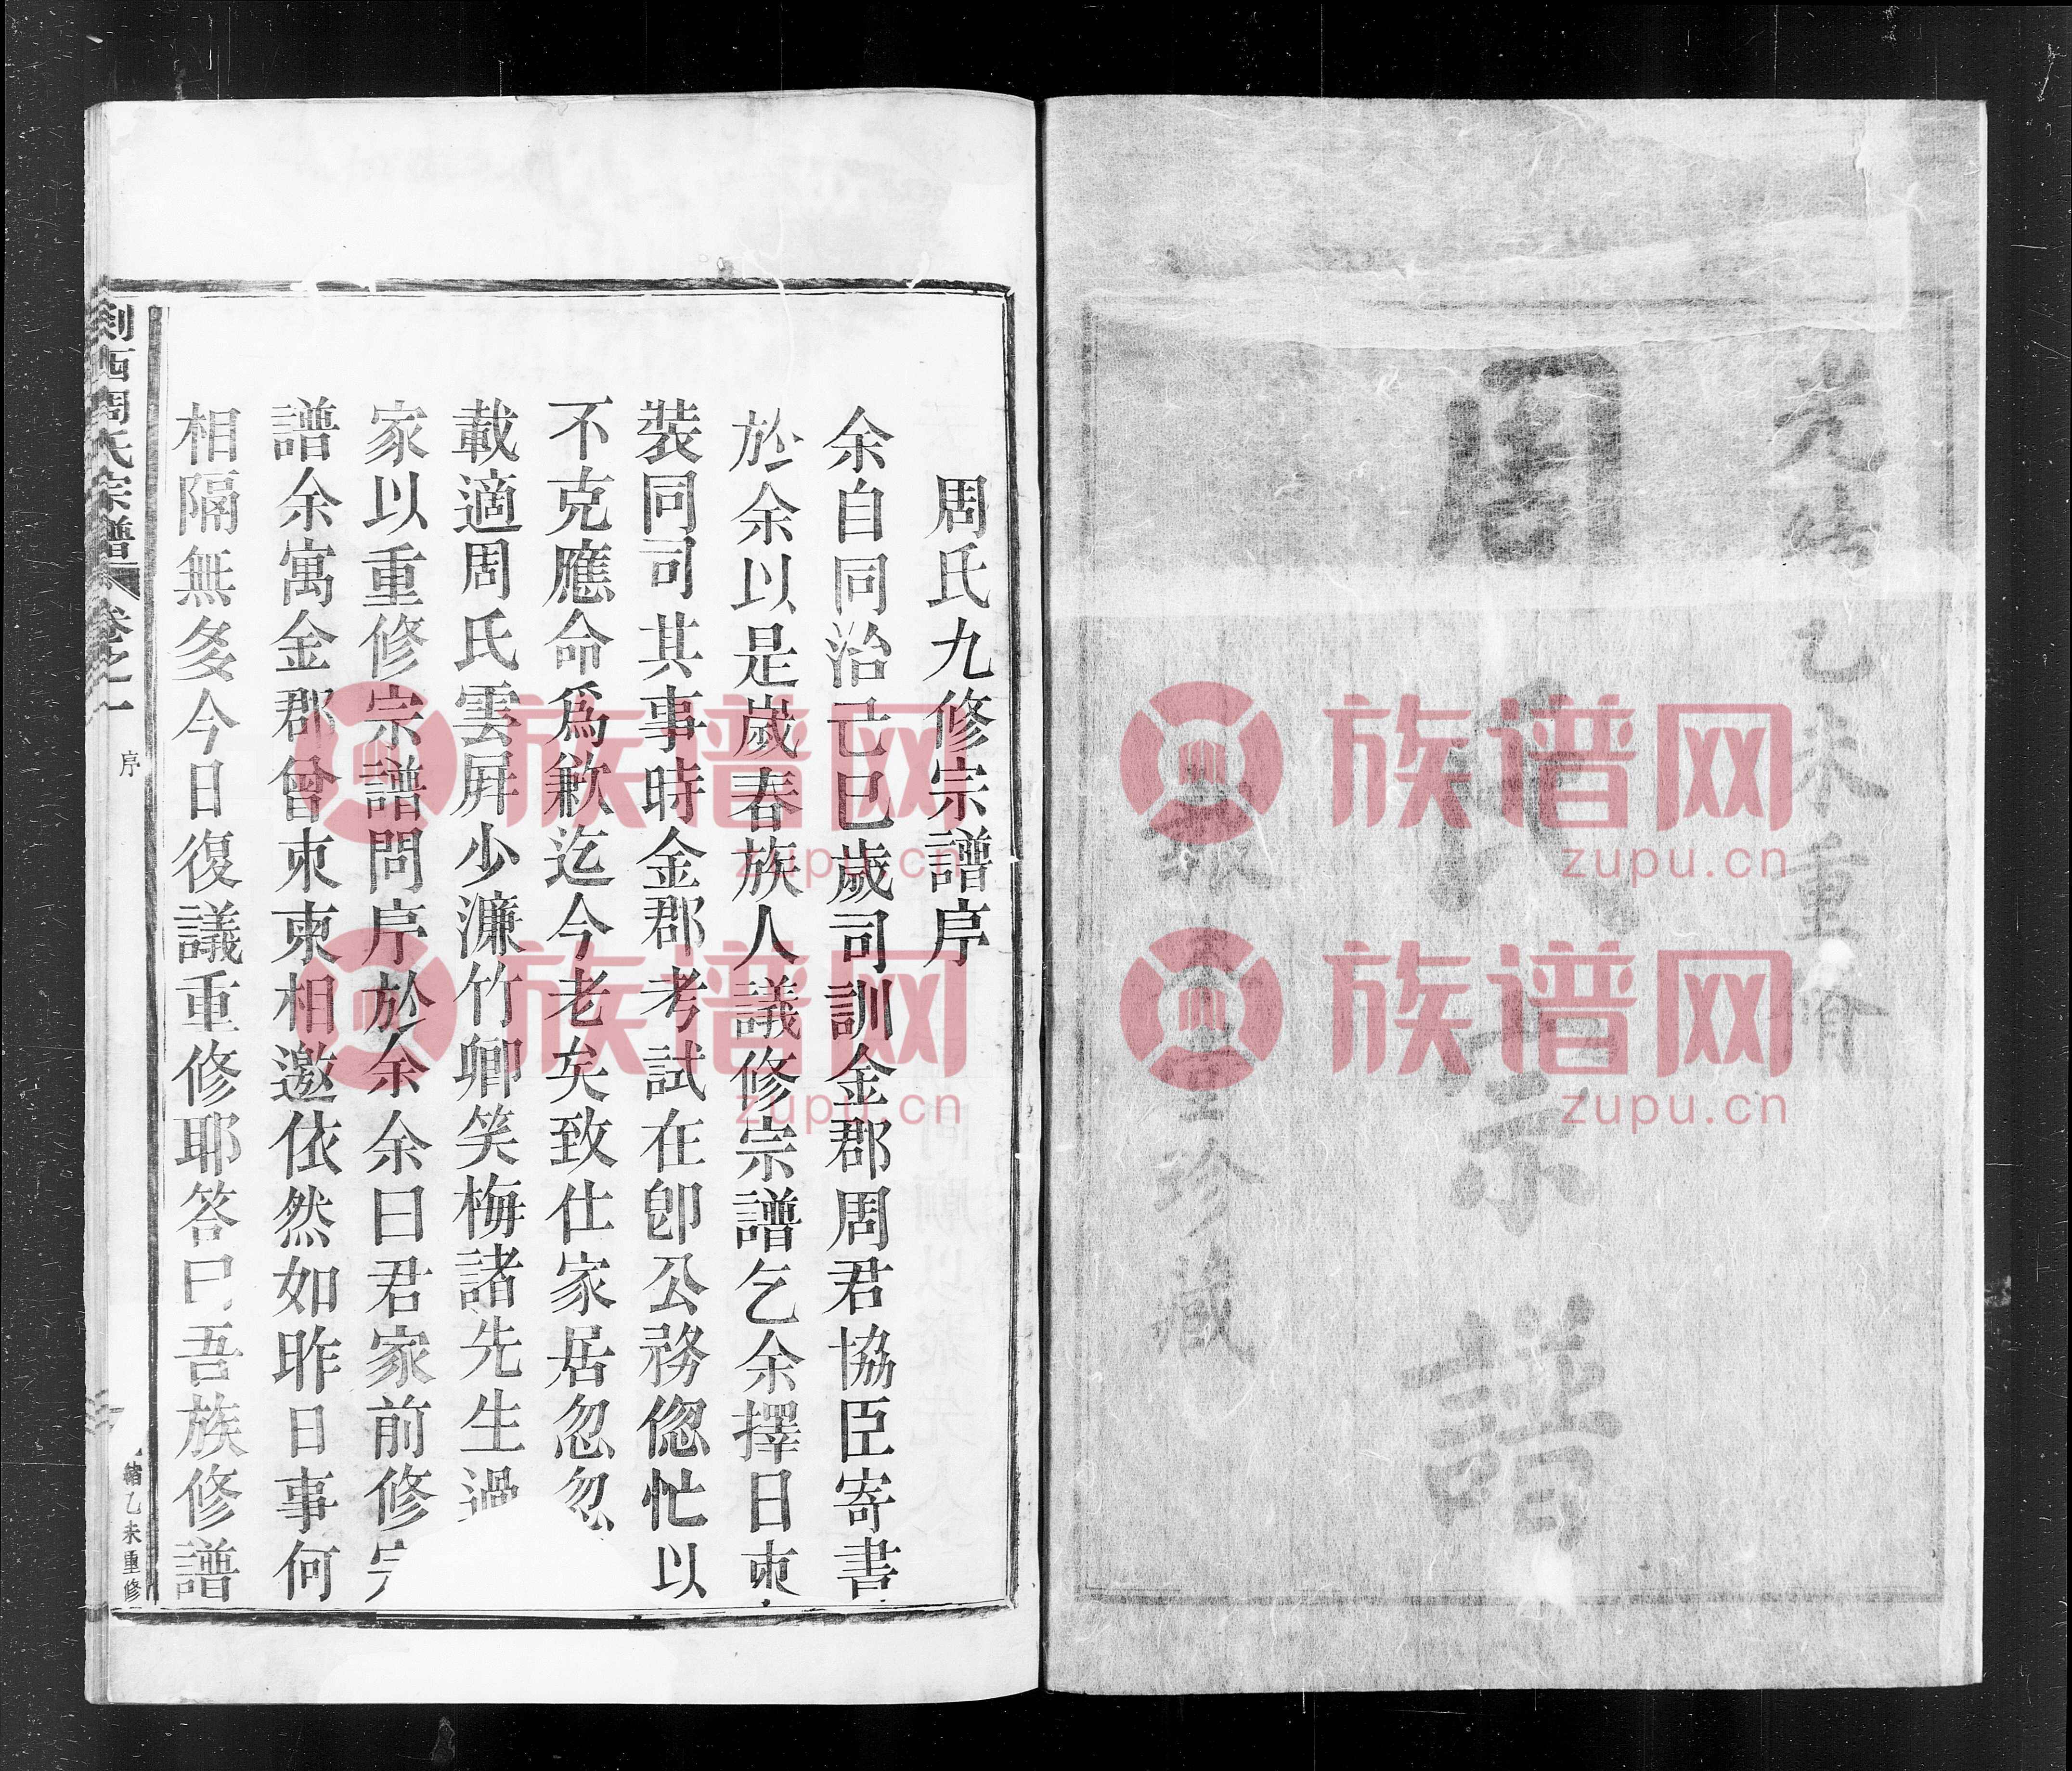 光緒乙未重脩
周氏宗譜
敬
堂珍藏
周氏九修宗譜序
余自同治己巳歲司訓金郡周君協臣寄書
於余以是歲春族人議修宗譜乞余擇日束
裝同司其事時金郡考試在卽公務偬忙以
不克應命爲歉迄今老矣致仕家居忽忽
載適周氏雲屏少濂竹卿笑梅諸先生過
家以重修宗譜問序於余余曰君家前修宗
譜余寓金郡曾束柬相邀依然如昨日事何
相隔無多今日復議重修耶答曰吾族修譜
剡西周氏宗譜 卷之一 序
緒乙未重修
族谱网
zupu.cn
族谱网
zupu.cn
族谱网
zupu.cn
族谱网
zupu.cn